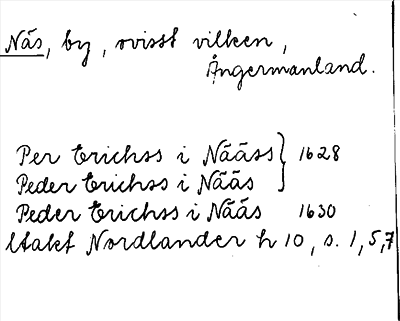 Näs, by, ovisst vilken,
Ångermanland.
Per Erichss i Nääss } 1628
Peder Erichss i Nääs
Peder Erichss i Nääs 1630
Utakt Nordlander h 10, s. 1, 5, 7